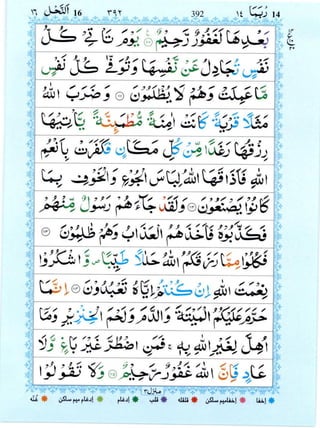 النحل 16 ٣٩٢ 392 ربما 14
بَعْدِهَا لَغَفُوْرٌ رَّحِيْمٌ ۝ يَوْمَ تَاْتِيْ كُلُّ
نَفْسٍ تُجَادِلُ عَنْ نَّفْسِهَا وَتُوَفّٰى كُلُّ نَفْسٍ
مَّا عَمِلَتْ وَهُمْ لَا يُظْلَمُوْنَ ۝ وَضَرَبَ اللّٰهُ
مَثَلًا قَرْيَةً كَانَتْ اٰمِنَةً مُّطْمَىِٕنَّةً يَّاْتِيْهَا
رِزْقُهَا رَغَدًا مِّنْ كُلِّ مَكَانٍ فَكَفَرَتْ بِاَنْعُمِ
اللّٰهِ فَاَذَاقَهَا اللّٰهُ لِبَاسَ الْجُوْعِ وَالْخَوْفِ بِمَا
كَانُوْا يَصْنَعُوْنَ ۝ وَلَقَدْ جَآءَهُمْ رَسُوْلٌ مِّنْهُمْ
فَكَذَّبُوْهُ فَاَخَذَهُمُ الْعَذَابُ وَهُمْ ظٰلِمُوْنَ ۝
فَكُلُوْا مِمَّا رَزَقَكُمُ اللّٰهُ حَلٰلًا طَيِّبًا وَّاشْكُرُوْا
نِعْمَتَ اللّٰهِ اِنْ كُنْتُمْ اِيَّاهُ تَعْبُدُوْنَ ۝ اِنَّمَا
حَرَّمَ عَلَيْكُمُ الْمَيْتَةَ وَالدَّمَ وَلَحْمَ الْخِنْزِيْرِ وَمَآ
اُهِلَّ لِغَيْرِ اللّٰهِ بِهٖ ۚ فَمَنِ اضْطُرَّ غَيْرَ بَاغٍ وَّلَا
عَادٍ فَاِنَّ اللّٰهَ غَفُوْرٌ رَّحِيْمٌ ۝ وَلَا تَقُوْلُوْا
منزل ٣
اخفا اخفامیم ساکن قلقله قلب ادغام ادغام میم ساکن غنه